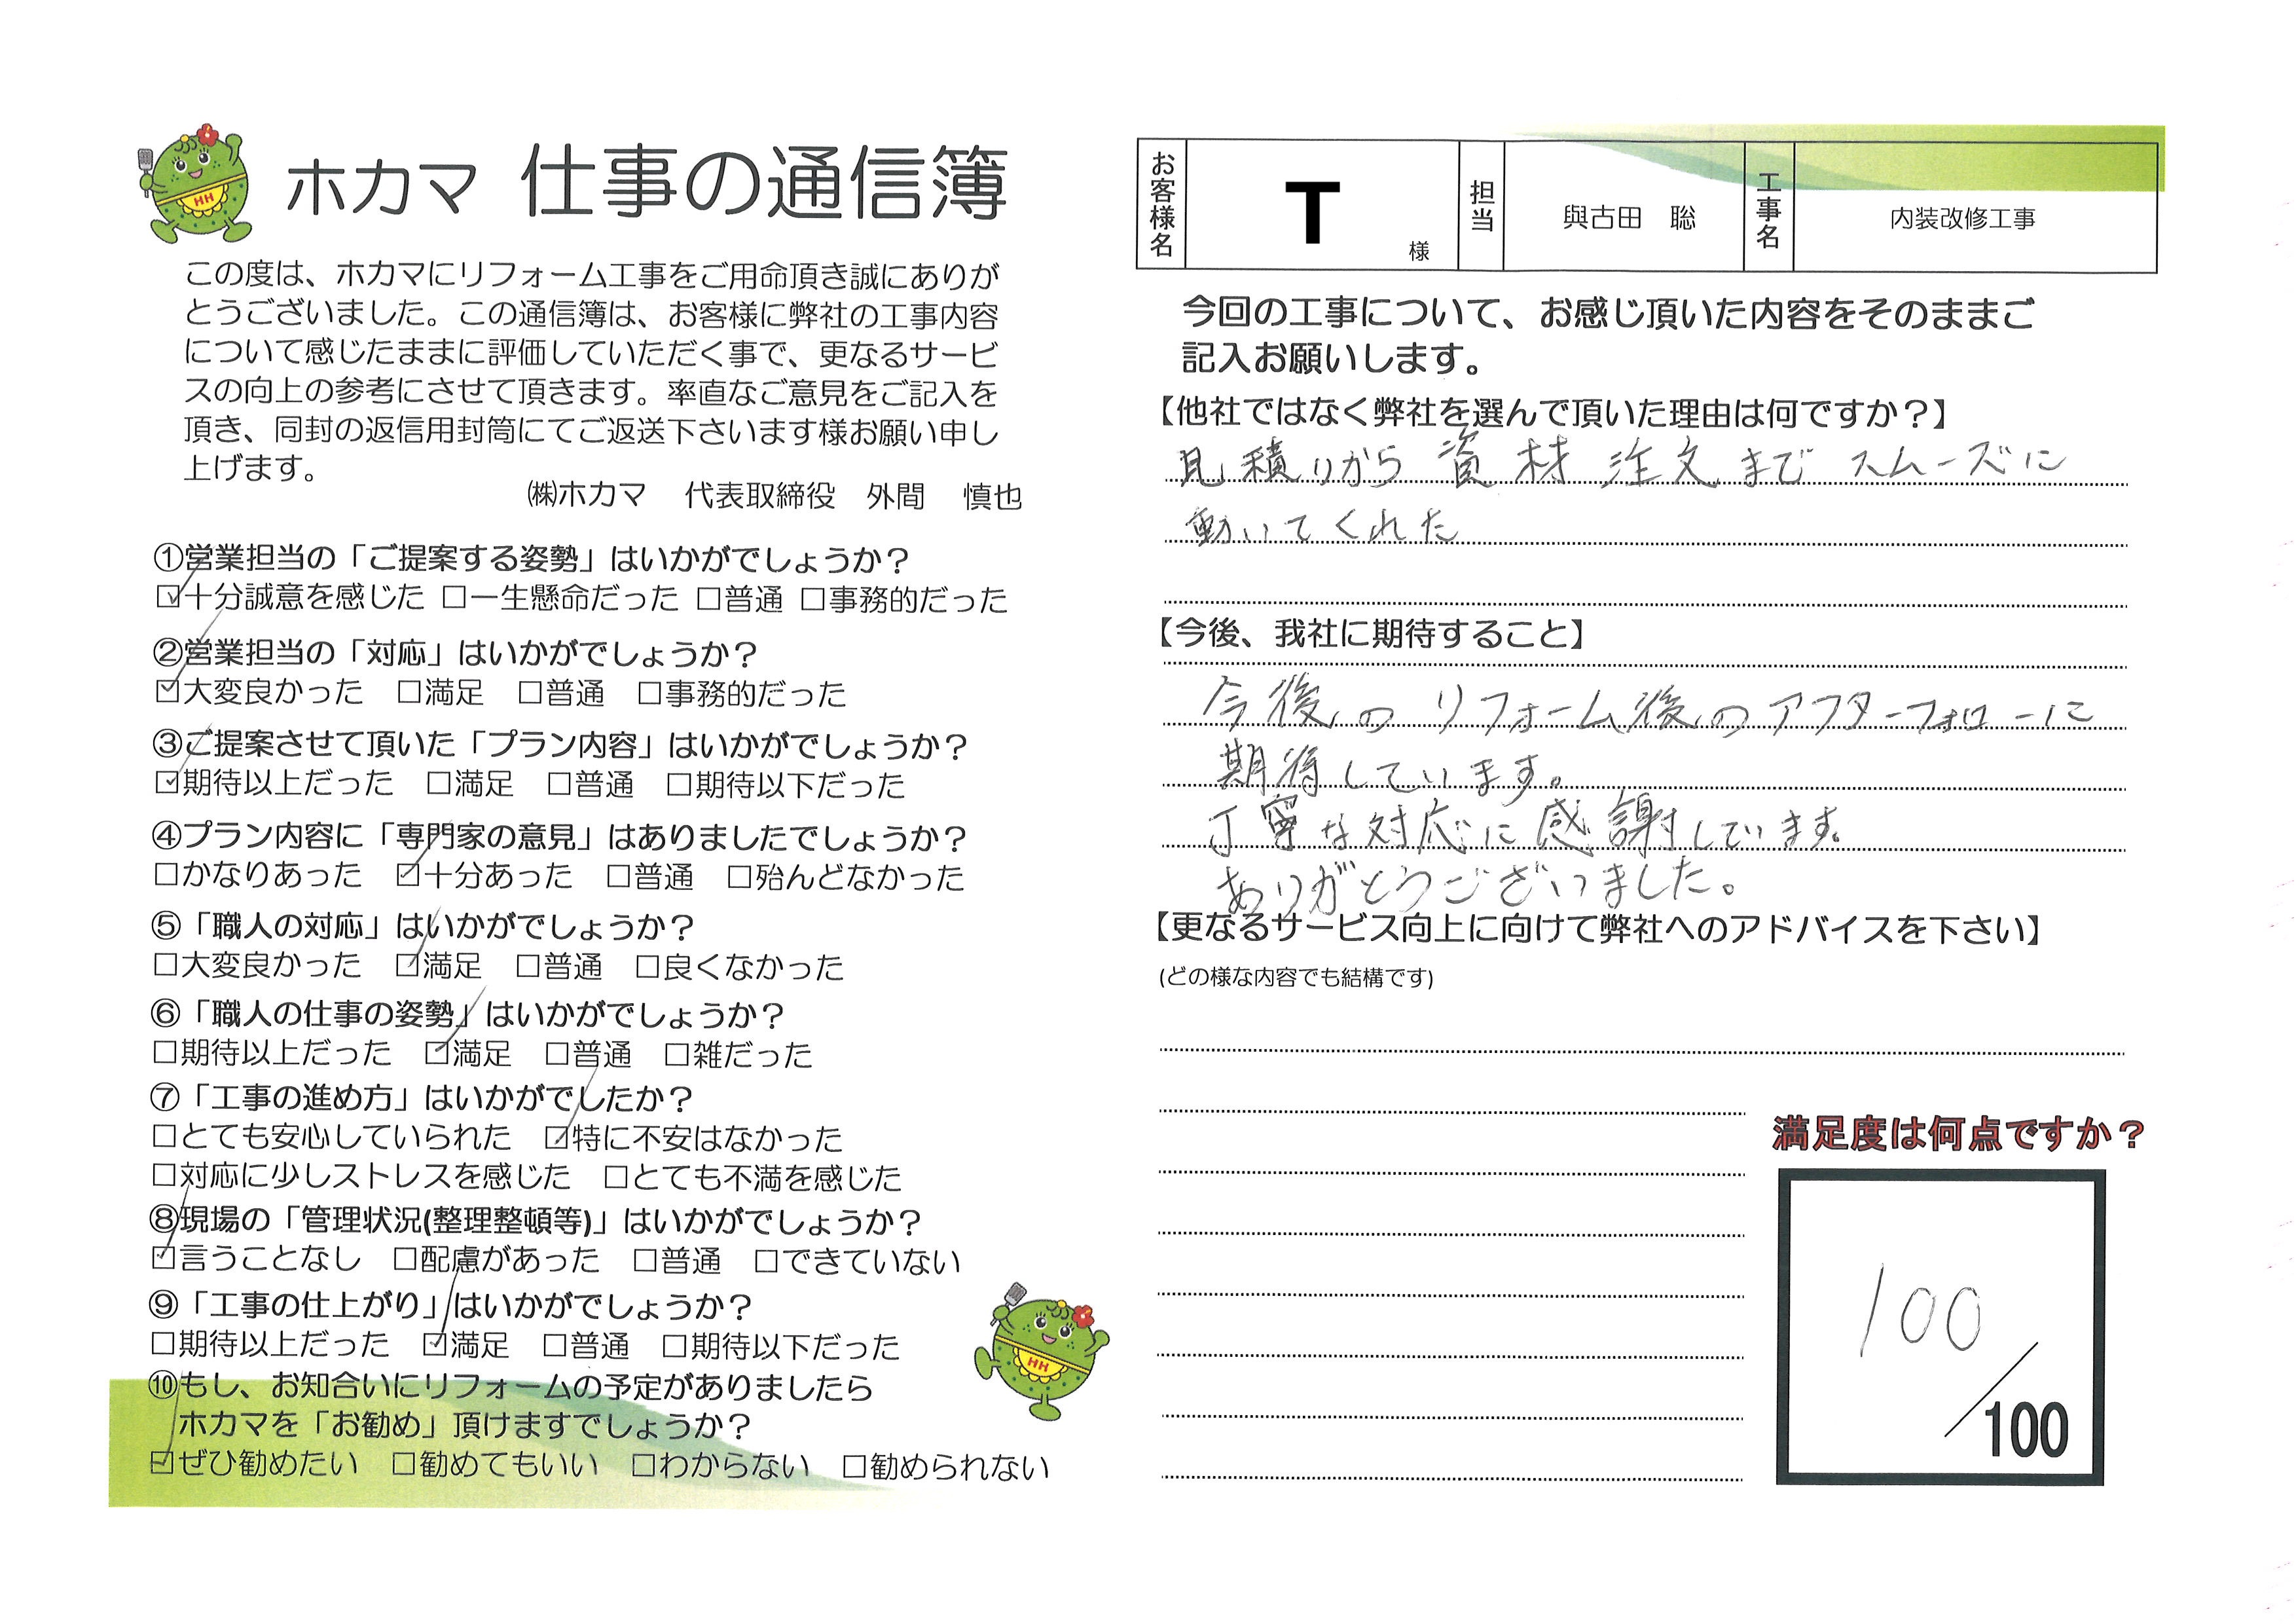 ホカマ 仕事の通信簿
この度は、ホカマにリフォーム工事をご用命頂き誠にありが
とうございました。この通信簿は、お客様に弊社の工事内容
について感じたままに評価していただく事で、更なるサービ
スの向上の参考にさせて頂きます。率直なご意見をご記入を
頂き、同封の返信用封筒にてご返送下さいます様お願い申し
上げます。
㈱ホカマ 代表取締役 外間 慎也
①営業担当の「ご提案する姿勢」はいかがでしょうか？
☑十分誠意を感じた □一生懸命だった □普通 □事務的だった
②営業担当の「対応」はいかがでしょうか？
☑大変良かった □満足 □普通 □事務的だった
③ご提案させて頂いた「プラン内容」はいかがでしょうか？
☑期待以上だった □満足 □普通 □期待以下だった
④プラン内容に「専門家の意見」はありましたでしょうか？
□かなりあった ☑十分あった □普通 □殆んどなかった
⑤「職人の対応」はいかがでしょうか？
□大変良かった ☑満足 □普通 □良くなかった
⑥「職人の仕事の姿勢」はいかがでしょうか？
□期待以上だった ☑満足 □普通 □雑だった
⑦「工事の進め方」はいかがでしたか？
□とても安心していられた ☑特に不安はなかった
□対応に少しストレスを感じた □とても不満を感じた
⑧現場の「管理状況(整理整頓等)」はいかがでしょうか？
☑言うことなし □配慮があった □普通 □できていない
⑨「工事の仕上がり」はいかがでしょうか？
□期待以上だった ☑満足 □普通 □期待以下だった
⑩もし、お知合いにリフォームの予定がありましたら
ホカマを「お勧め」頂けますでしょうか？
☑ぜひ勧めたい □勧めてもいい □わからない □勧められない
HH
HH
お客様名 T 様 担当 與古田 聡 工事名 内装改修工事
今回の工事について、お感じ頂いた内容をそのままご
記入お願いします。
【他社ではなく弊社を選んで頂いた理由は何ですか？】
見積りから資材注文までスムーズに
動いてくれた
【今後、我社に期待すること】
今後のリフォーム後のアフターフォローに
期待しています。
丁寧な対応に感謝しています。
ありがとうございました。
【更なるサービス向上に向けて弊社へのアドバイスを下さい】
(どの様な内容でも結構です)
満足度は何点ですか？
100
/100